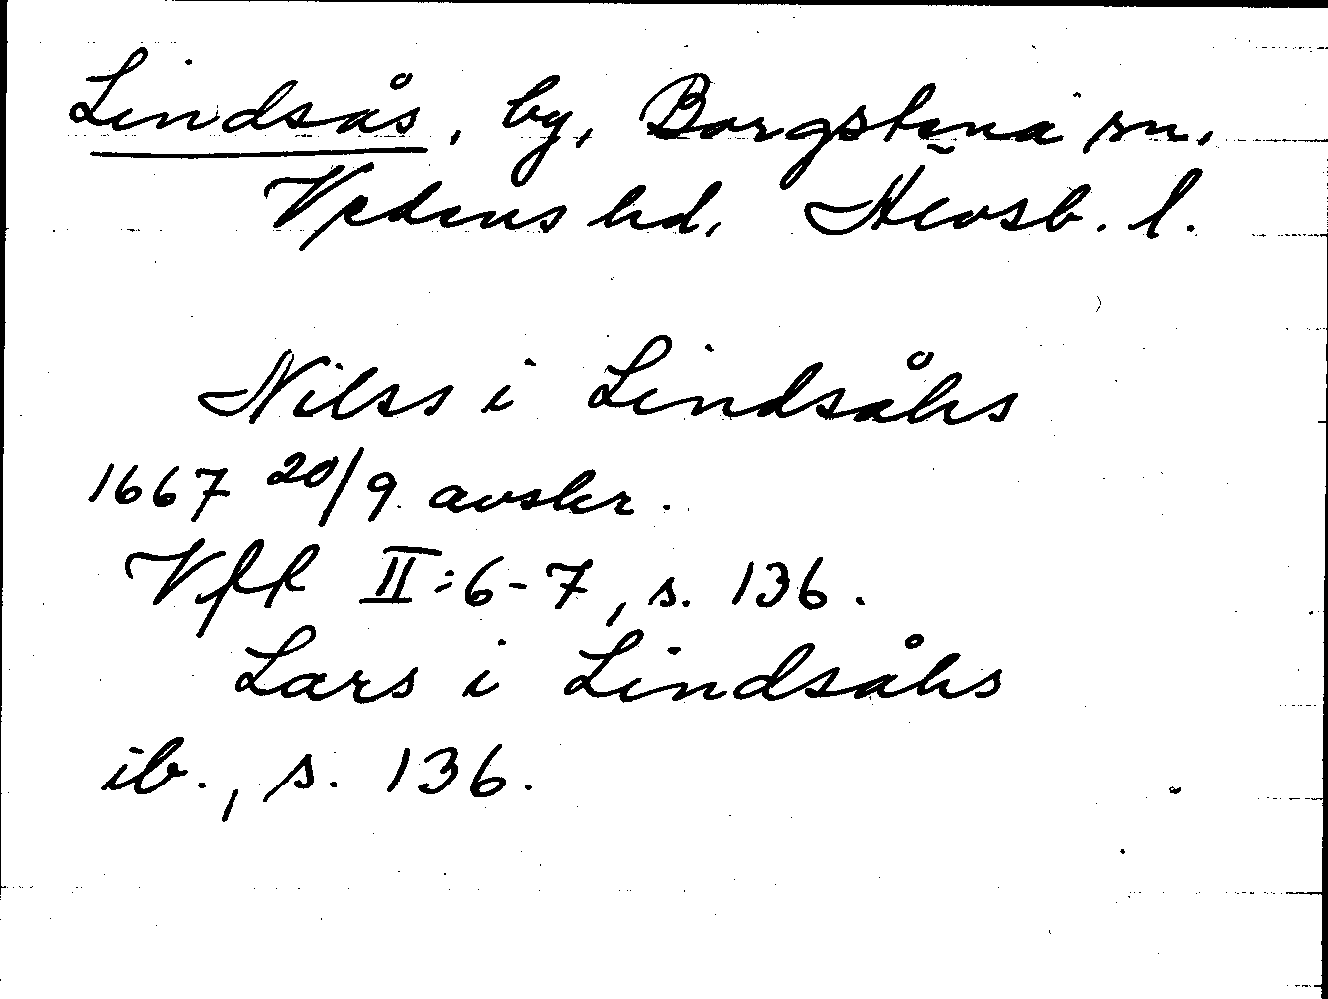 Lindsås, by, Borgstena sn.
Vedens hd, Älvsb. l.
Nilss i Lindsåhs
1667 20/9 avskr.
Vff II:6-7, s. 136.
Lars i Lindsåhs
ib., s. 136.